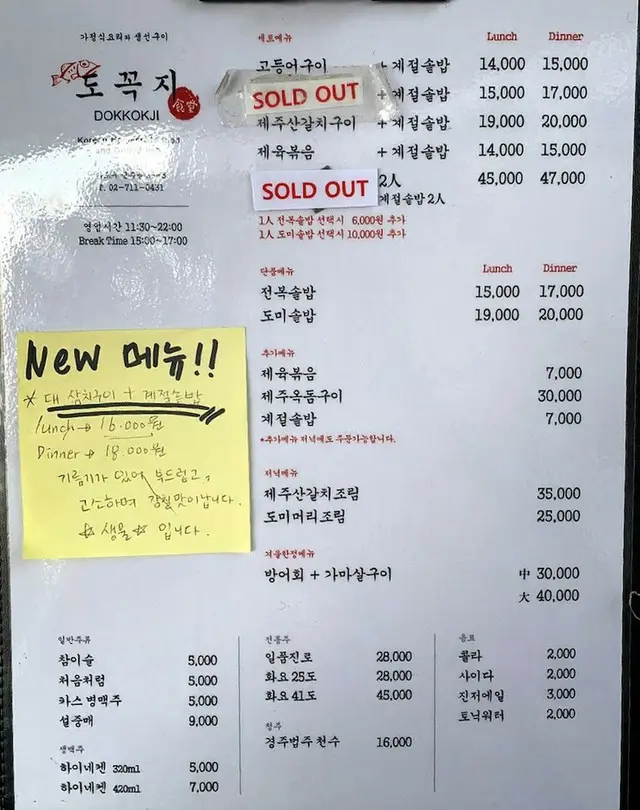 가정식요리와 생선구이
도꼭지
食堂
DOKKOKJI
02-711-0431
영업시간 11:30~22:00
Break Time 15:00~17:00
New 메뉴!!
* 대 삼치구이 + 계절솥밥
lunch → 16.000원
Dinner → 18.000원
기름기가 있어 부드럽고,
고소하며 감칠맛이납니다.
☆ 생물 ☆ 입니다.
세트메뉴 Lunch Dinner
고등어구이 + 계절솥밥 14,000 15,000
SOLD OUT + 계절솥밥 15,000 17,000
제주산갈치구이 + 계절솥밥 19,000 20,000
제육볶음 + 계절솥밥 14,000 15,000
SOLD OUT 2인 45,000 47,000
계절솥밥 2인
1인 전복솥밥 선택시 6,000원 추가
1인 도미솥밥 선택시 10,000원 추가
단품메뉴 Lunch Dinner
전복솥밥 15,000 17,000
도미솥밥 19,000 20,000
추가메뉴
제육볶음 7,000
제주옥돔구이 30,000
계절솥밥 7,000
*추가메뉴 저녁에도 주문가능합니다.
저녁메뉴
제주산갈치조림 35,000
도미머리조림 25,000
겨울한정메뉴
방어회 + 가마살구이 中 30,000
大 40,000
일반주류
참이슬 5,000
처음처럼 5,000
카스 병맥주 5,000
설중매 9,000
생맥주
하이네켄 320ml 5,000
하이네켄 420ml 7,000
전통주
일품진로 28,000
화요 25도 28,000
화요 41도 45,000
청주
경주법주 천수 16,000
음료
콜라 2,000
사이다 2,000
진저에일 3,000
토닉워터 2,000